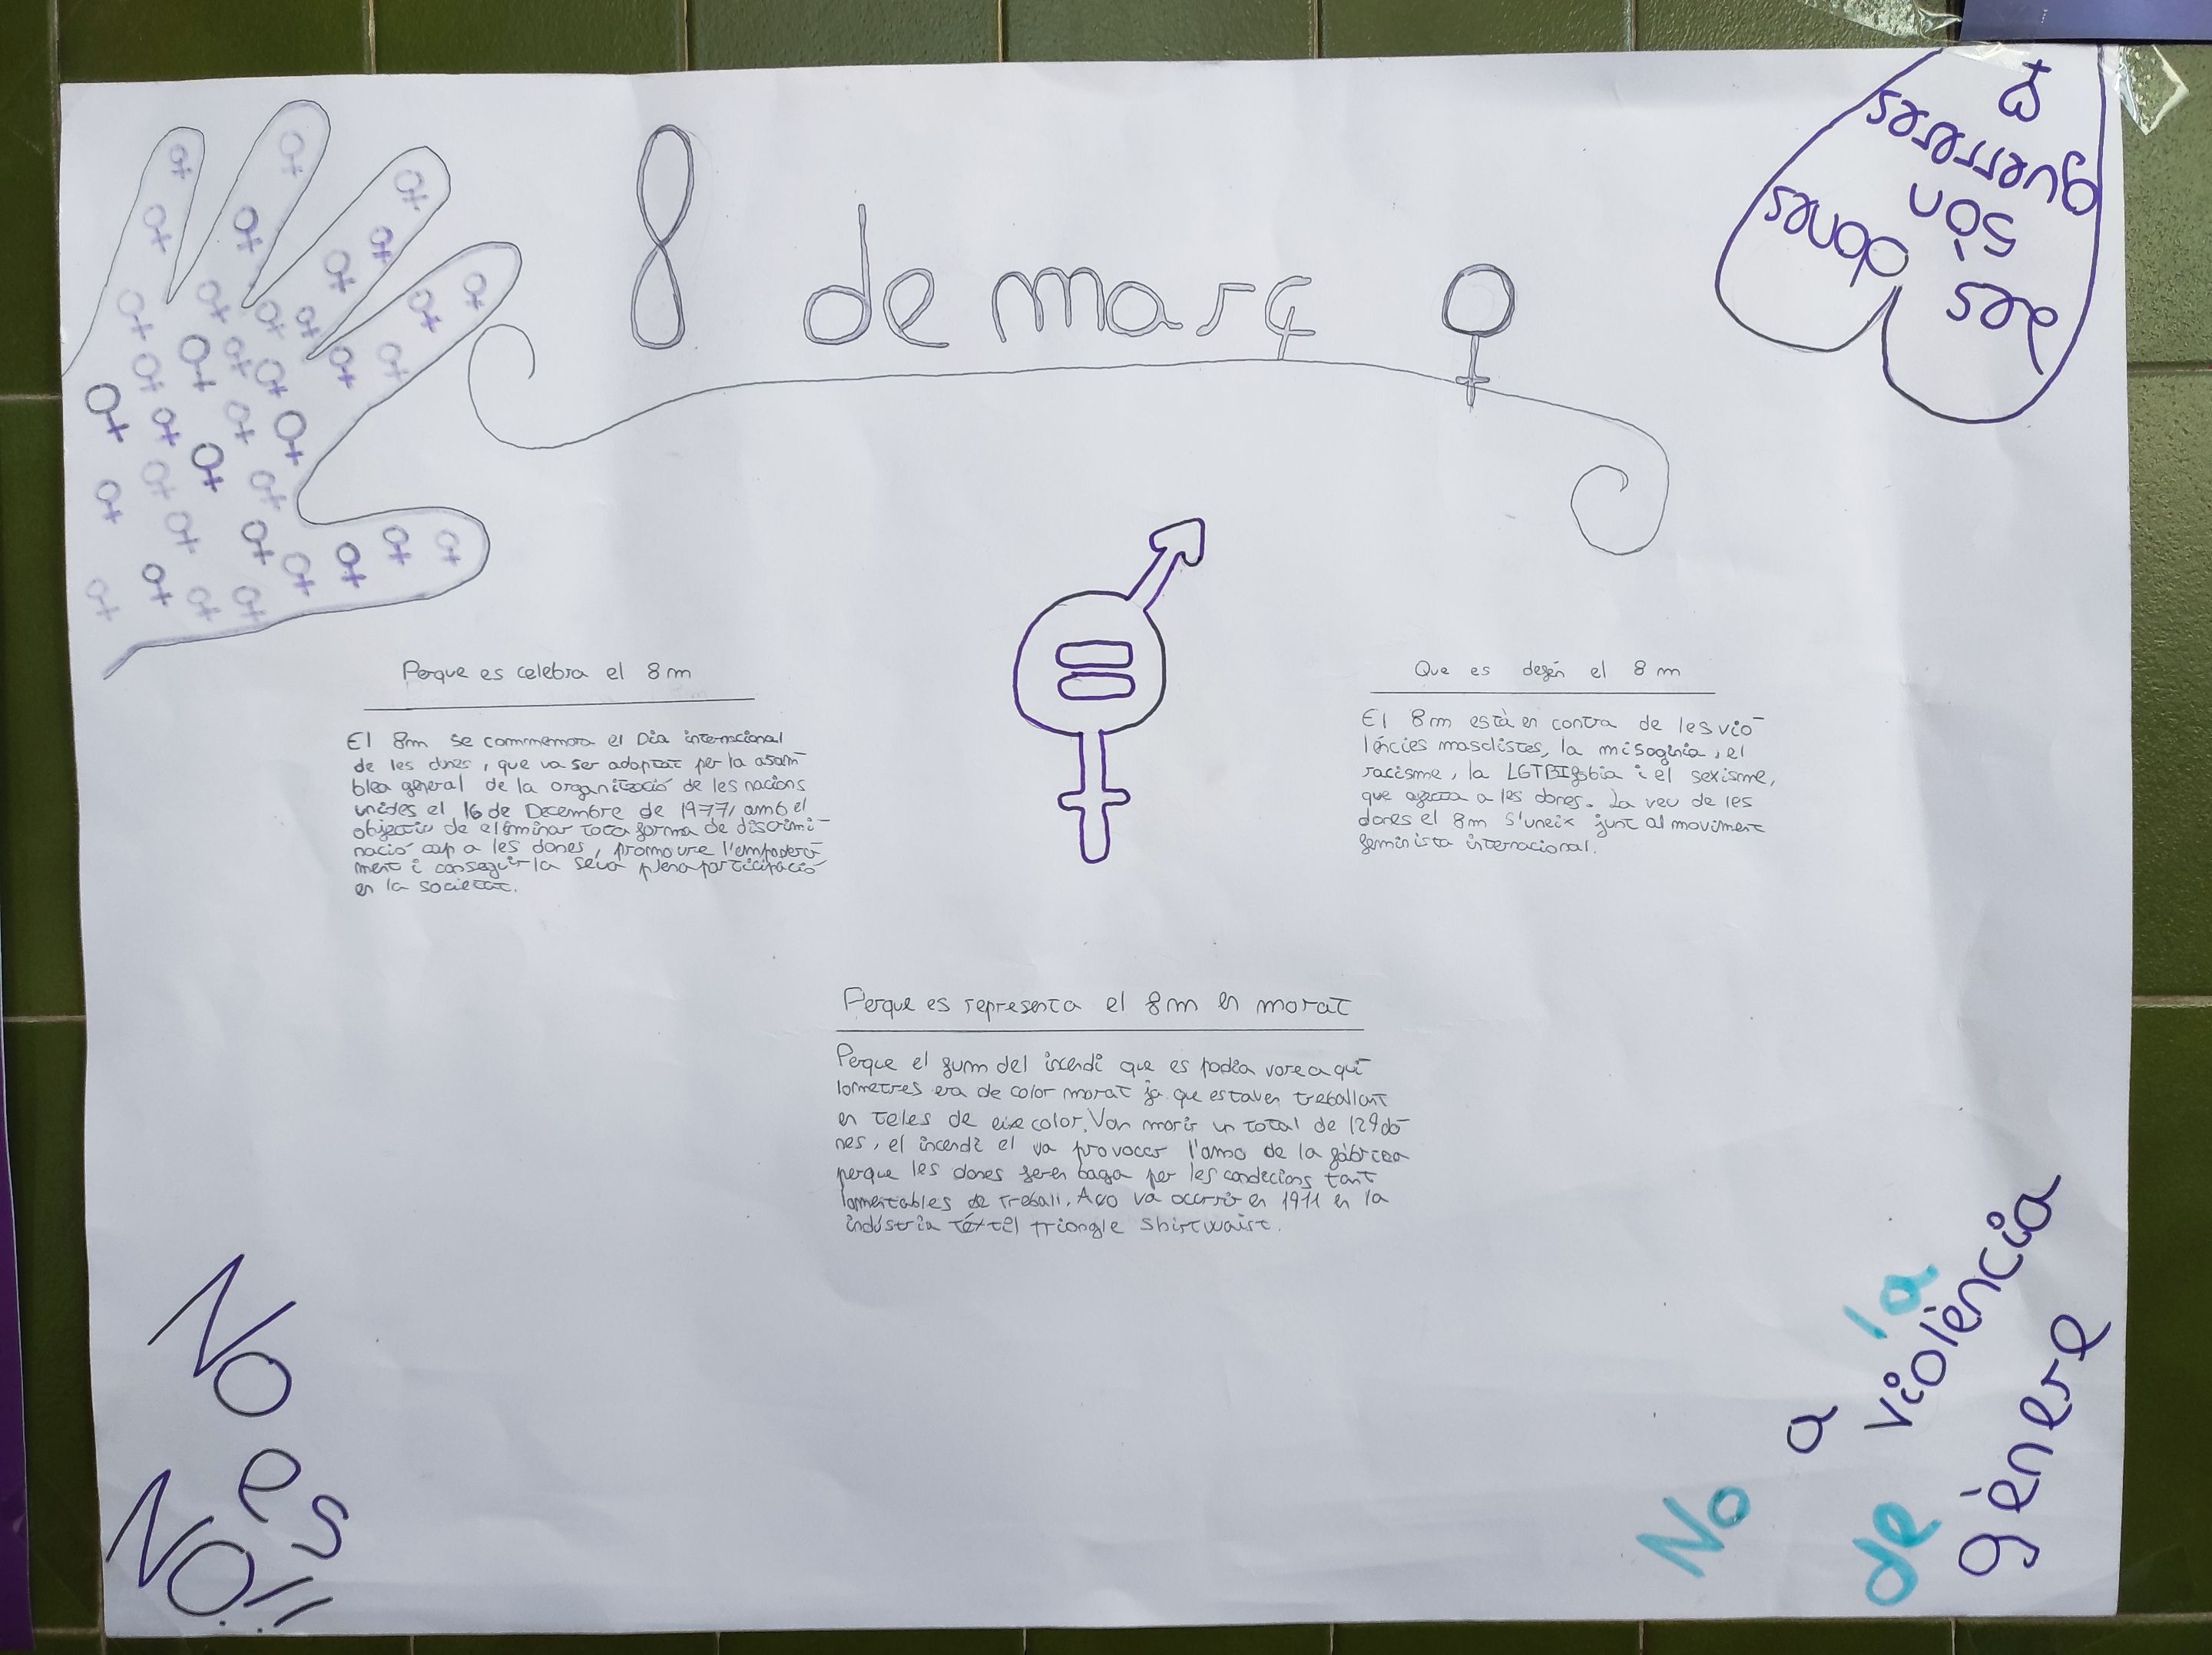 8 de març
les
dones
són
guerreres
Perque es celebra el 8 m
El 8m se commemora el Dia internacional
de les dones, que va ser adoptat per la asam
blea general de la organització de les nacions
unides el 16 de Decembre de 1977, amb el
objectiu de eliminar tota forma de discrimi-
nació cap a les dones, promoure l'empodera
ment i conseguir la seua plena participació
en la societat.
Que es defén el 8 m
El 8m està en contra de les vio-
lències masclistes, la misoginia, el
racisme, la LGTBIfobia i el sexisme,
que afecta a les dones. La veu de les
dones el 8m s'uneix junt al moviment
feminista internacional.
Perque es representa el 8m en morat
Perque el fum del incendi que es podia vore a qui-
lometres era de color morat ja que estaven treballant
en teles de eixe color. Van morir un total de 129 do-
nes, el incendi el va provocar l'amo de la fàbrica
perque les dones feren baga per les condicions tant
lamentables de treball. Aço va ocorrir en 1911 en la
indústria téxtil triangle shirtwaist.
No
es
NO!!
No a la
violència
de gènere